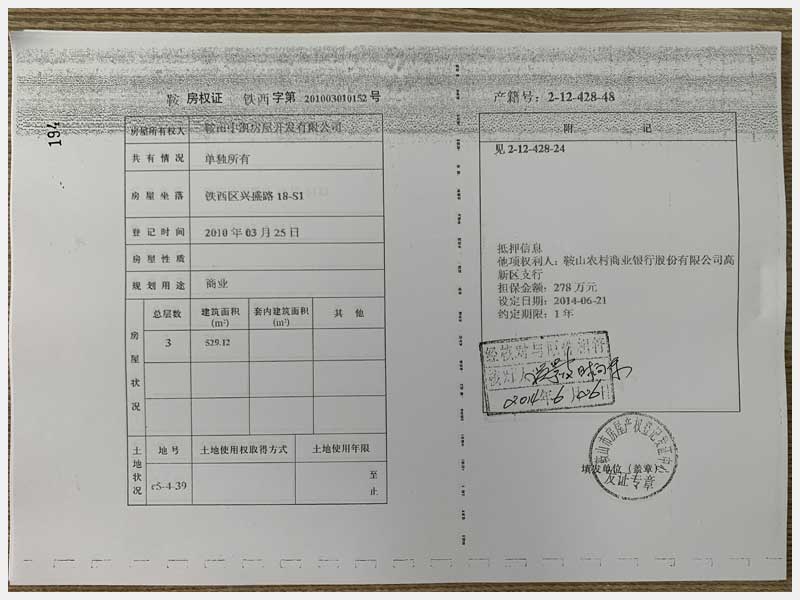 194
鞍 房权证 铁西 字第 201003010152 号
房屋所有权人 鞍山中凯房屋开发有限公司
共有情况 单独所有
房屋坐落 铁西区兴盛路 18-S1
登记时间 2010 年 03 月 25 日
房屋性质
规划用途 商业
房屋状况
总层数 建筑面积(m²) 套内建筑面积(m²) 其他
3 529.12
土地状况
地号 土地使用权取得方式 土地使用年限
c5-4-39 至 止
产籍号：2-12-428-48
附 记
见 2-12-428-24
抵押信息
他项权利人：鞍山农村商业银行股份有限公司高
新区支行
担保金额：278 万元
设定日期：2014-06-21
约定期限：1 年
经核对与原件相符
核对人
2014年6
填发单位（盖章）
鞍山市房屋产权登记发证中心
发证专章